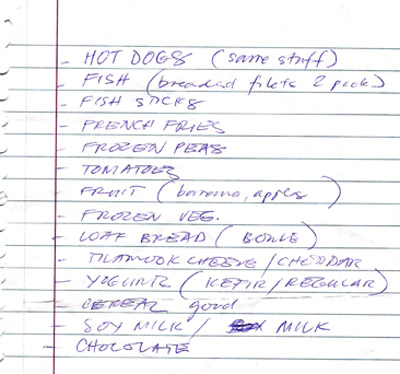 - HOT DOGS (same stuff)
- FISH (breaded filets 2 pack)
- FISH STICKS
- FRENCH FRIES
- FROZEN PEAS
- TOMATOES
- FRUIT (banana, apples)
- FROZEN VEG.
- LOAF BREAD ( )
- TILAMOOK CHEESE / CHEDDAR
- YOGURT (KEFIR / REGULAR)
- CEREAL good
- SOY MILK / MILK
- CHOCOLATE